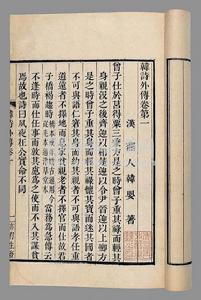 韓詩外傳卷第一
漢 燕人韓嬰著
曾子仕於莒得粟三秉方是之時曾子重其祿而輕其
身親沒之後齊迎以相楚迎以令尹晉迎以上卿方
是之時曾子重其身而輕其祿懷其寶而迷其國者
不可與語仁窘其身而約其親者不可與語孝任重
道遠者不擇地而息家貧親老者不擇官而仕故君
子橋褐趨時
當務為急傳云
不逢時而仕任事而敦其慮為之使而不入其謀貧
焉故也詩曰夙夜在公實命不同